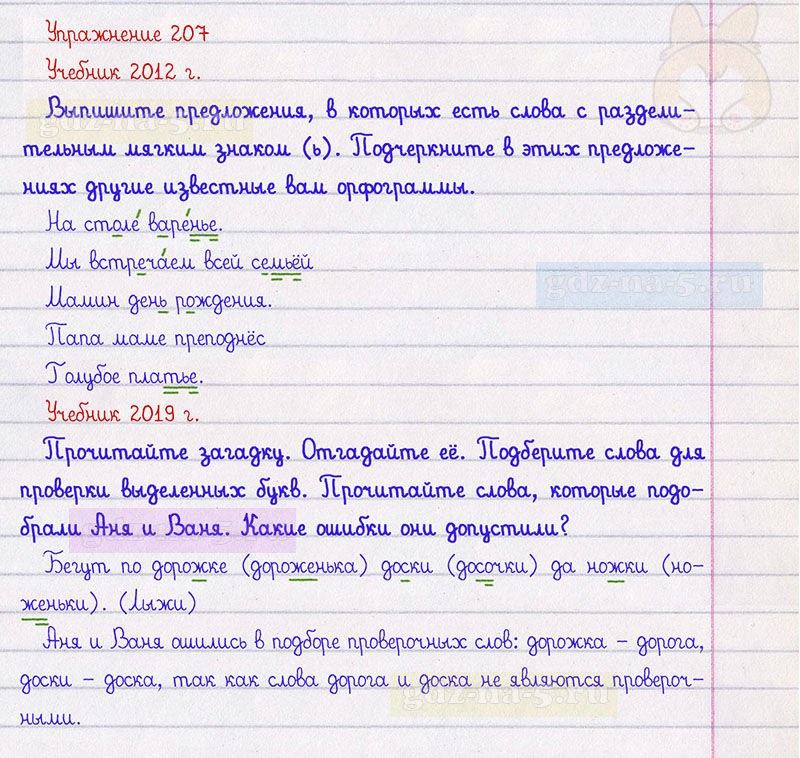 Упражнение 207
Учебник 2012 г.
Выпишите предложения, в которых есть слова с раздели-
gdz-na-5.ru
тельным мягким знаком (ь). Подчеркните в этих предложе-
ниях другие известные вам орфограммы.
На столе́ варе́нье.
Мы встреча́ем всей семьёй
gdz-na-5.ru
Мамин день рождения.
Папа маме преподнёс
Голубое платье.
Учебник 2019 г.
Прочитайте загадку. Отгадайте её. Подберите слова для
проверки выделенных букв. Прочитайте слова, которые подо-
брали Аня и Ваня. Какие ошибки они допустили?
gdz-na-5.ru
Бегут по дорожке (дороженька) доски (досочки) да ножки (но-
женьки). (Лыжи)
Аня и Ваня ошились в подборе проверочных слов: дорожка – дорога,
доски – доска, так как слова дорога и доска не являются провероч-
gdz-na-5.ru
ными.